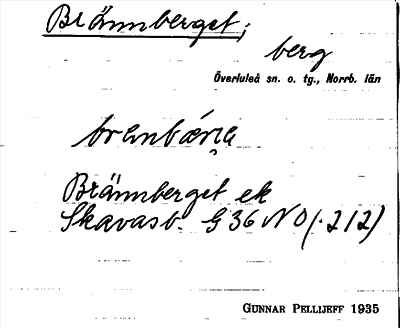 Brännberget;
berg
Överluleå sn. o. tg., Norrb. län
Brännberget ek
Skavasb. G 36 NO (. 212)
GUNNAR PELLIJEFF 1935